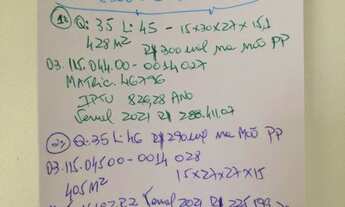 1º Q: 35 L: 45 - 15x30x27x15,1
428m² R$300 mil na mão PP
03.115.044.00 - 0014027
MATRIC. 46796
IPTU 826,28 ANO
Venal 2021 R$ 288.411,07
2º Q: 35 L: 46 R$290 mil na Mão PP
03.115.04500 - 0014 028
15x27x27x15
405m²
Venal 2021 R$